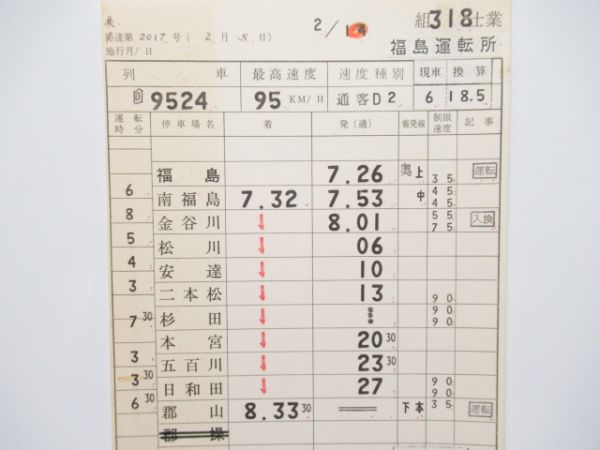 2/14 組318仕業
達第2017号(2月5日)
施行月/日 福島運転所
列 車 最高速度 速度種別 現車 換算
回9524 95KM/H 通客D2 6 18.5
運転時分 停車場名 着 発(通) 着発線 制限速度 記事
福島 7.26 奥上 35 運転
6
南福島 7.32 7.53 中 45 45
8
金谷川 ↓ 8.01 55 75 入換
5
松川 ↓ 06
4
安達 ↓ 10
3
二本松 ↓ 13 90
7 30
杉田 ↓ 90 90
本宮 ↓ 20 30
3
五百川 ↓ 23 30
3 30
日和田 ↓ 27 90 90
6 30
郡山 8.33 30 下本 35 運転
郡操